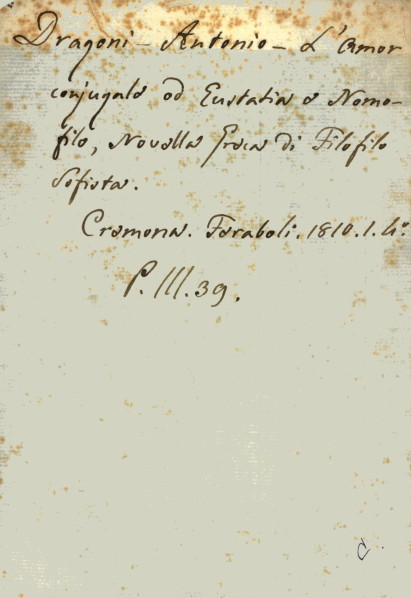 Dragoni - Antonio - L'Amor
conjugale od Eustatia e Nomo-
filo, Novella Greca di Filofilo
Sofista.
Cremona. Feraboli. 1810. 1. 4°
P. III. 39.
C.